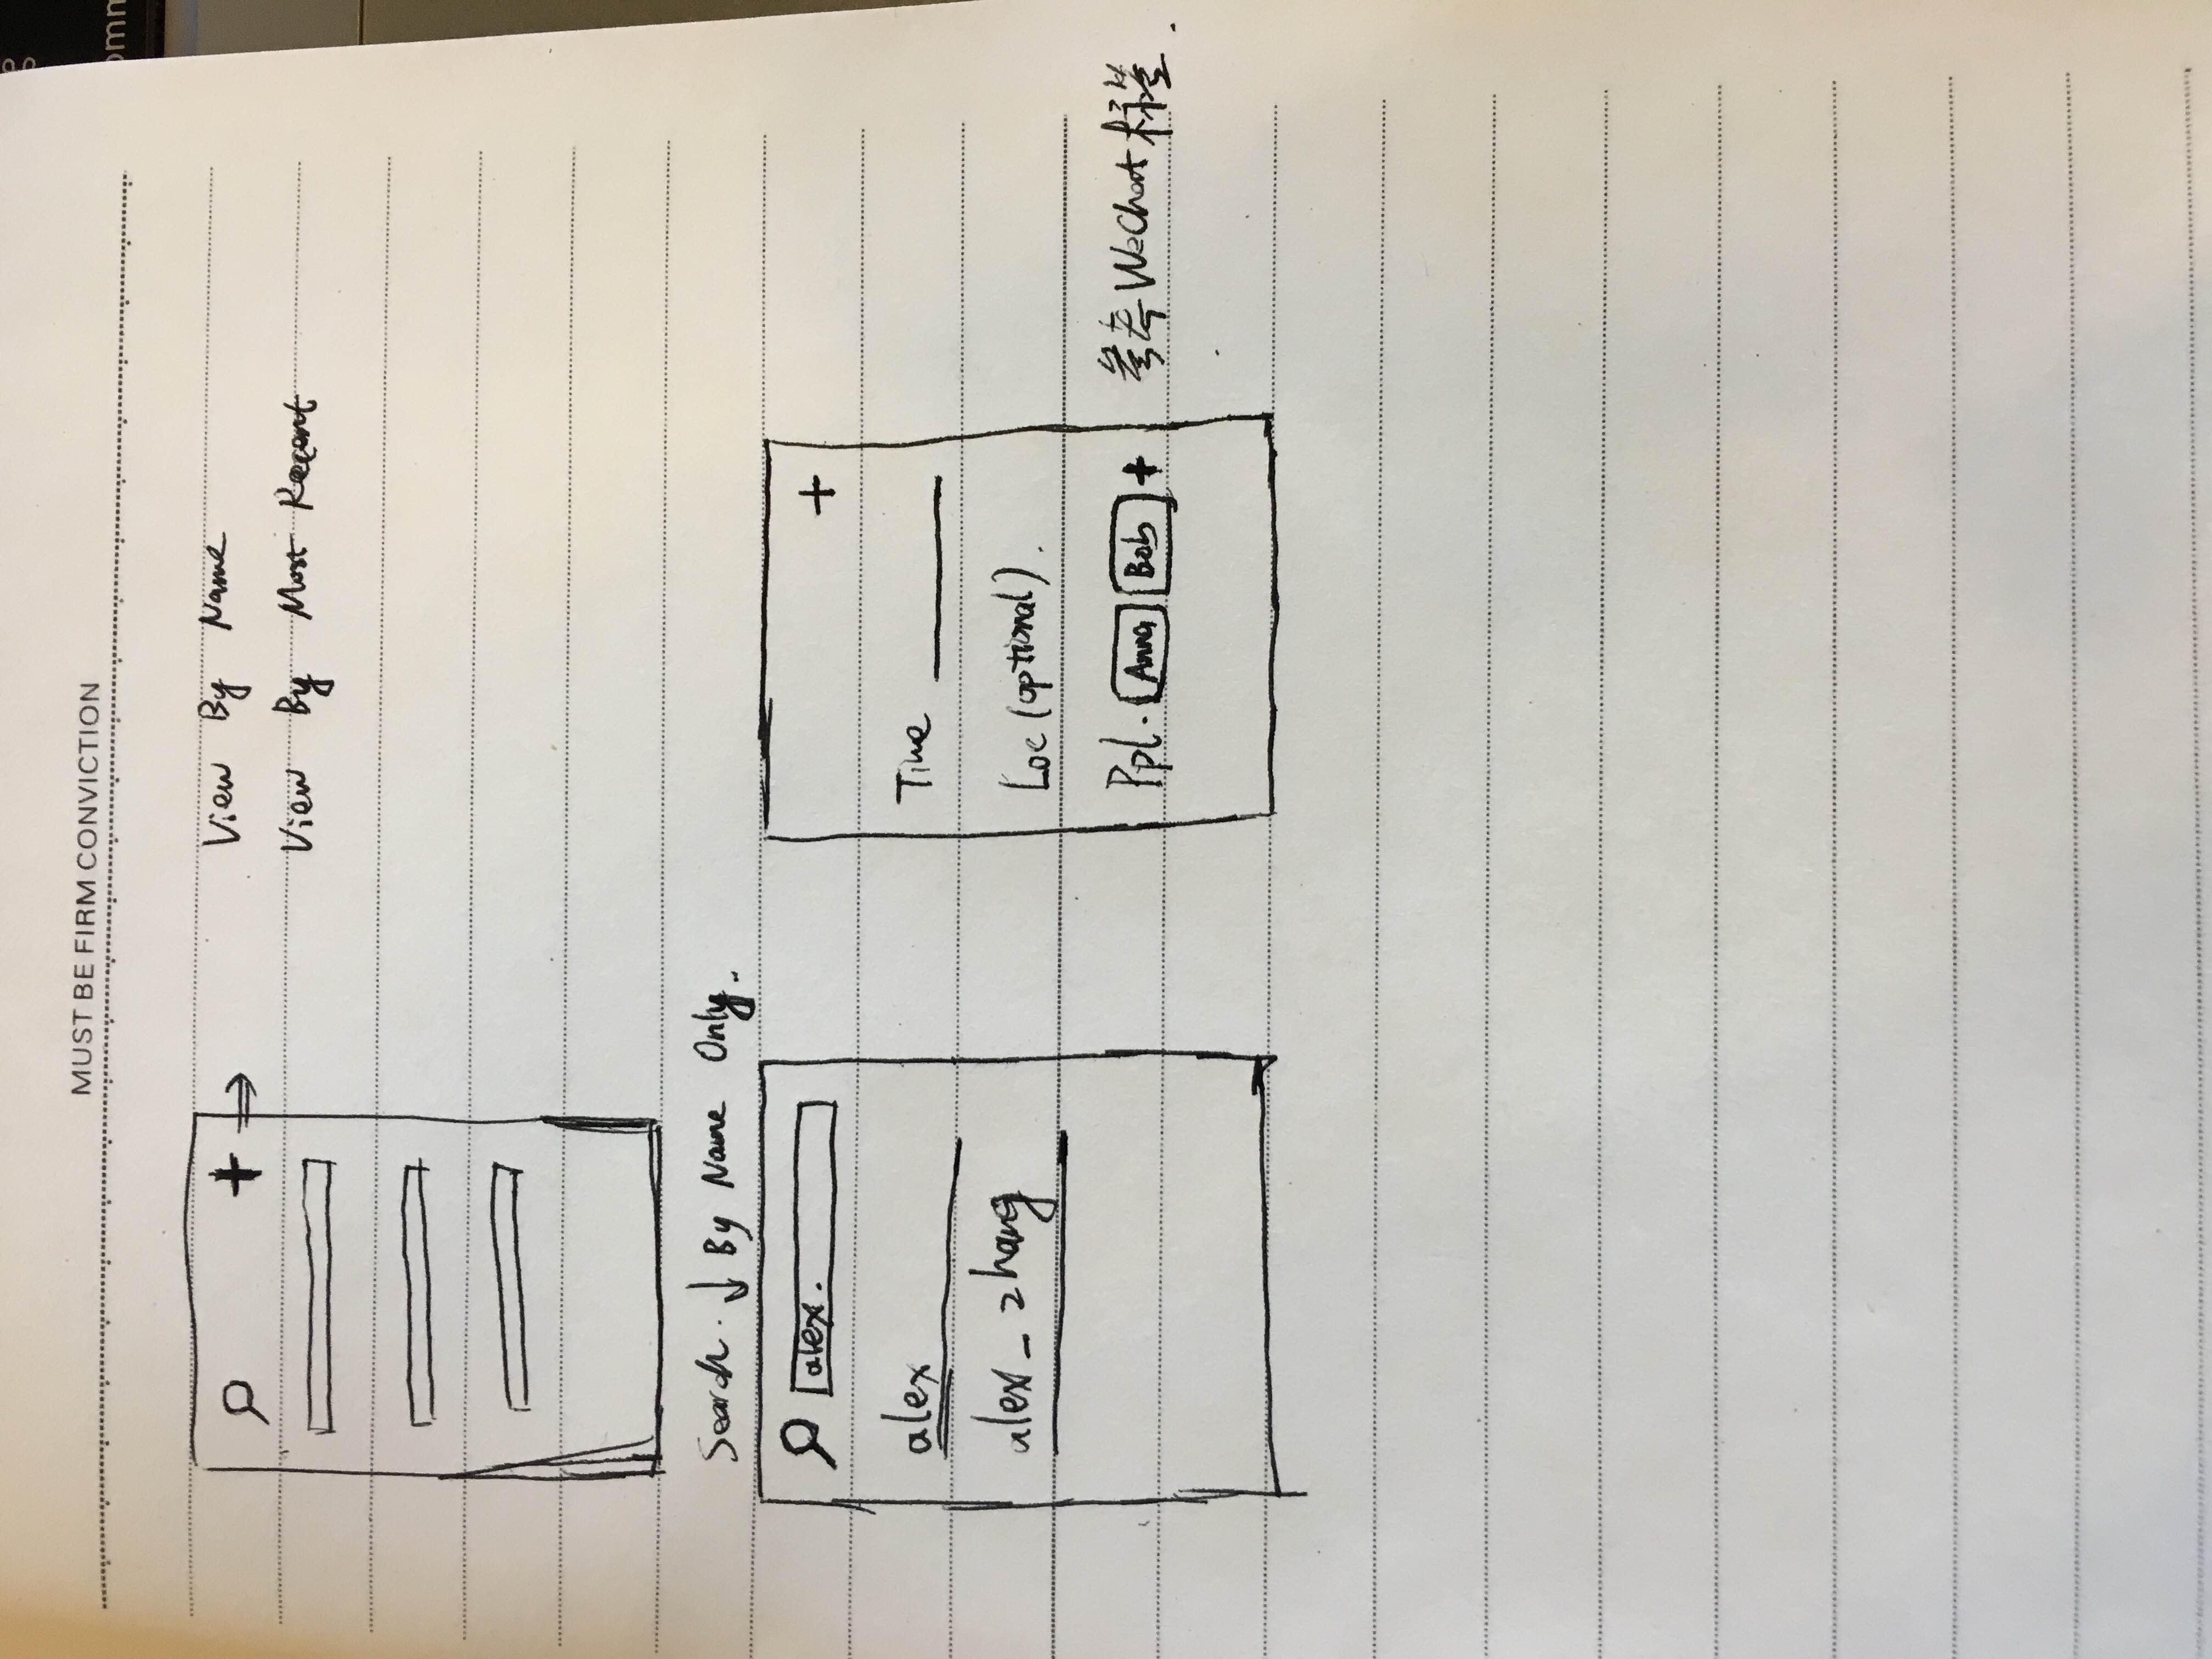 MUST BE FIRM CONVICTION
View By Name
View By Most Recent
Search. By Name Only.
alex.
alex
alex_zhang
Time
Loc (optional).
Ppl. Anna Bob + 参考WeChat标签.